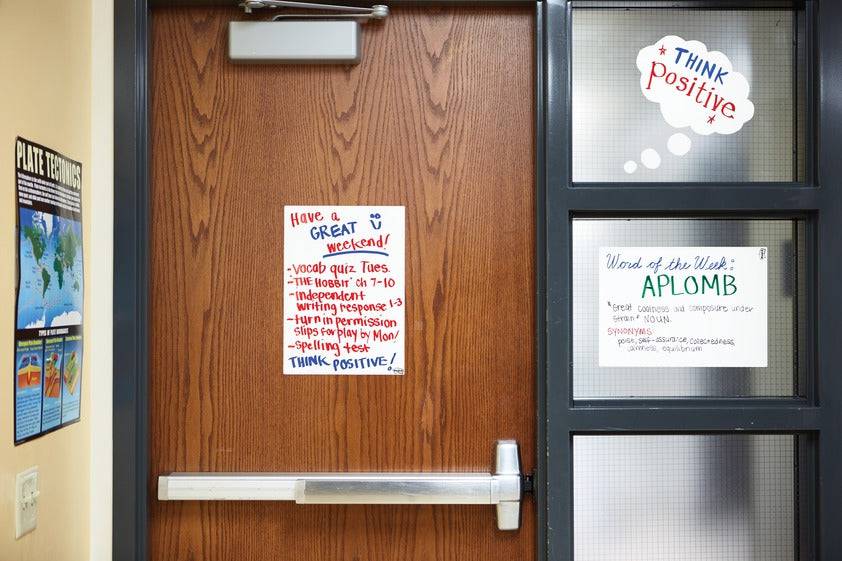 PLATE TECTONICS
TYPES OF PLATE BOUNDARIES
Have a
GREAT
weekend!
-Vocab quiz Tues.
-'THE HOBBIT' ch 7-10
-Independent
writing response 1-3
-turn in permission
slips for play by Mon!
-Spelling test
THINK POSITIVE!
THINK
positive
Word of the Week:
APLOMB
"Great coolness and composure under
strain" NOUN.
SYNONYMS
poise, self-assurance, collectedness,
calmness, equilibrium